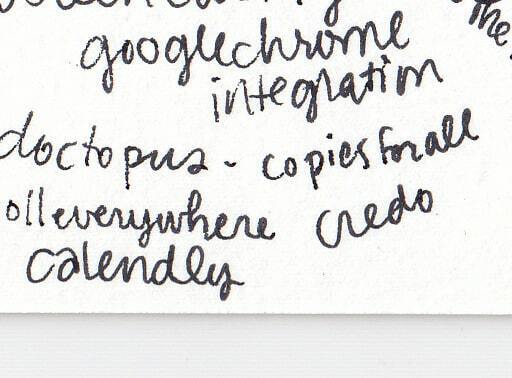 the
googlechrome
integration
doctopus - copies for all
olleverywhere credo
calendly